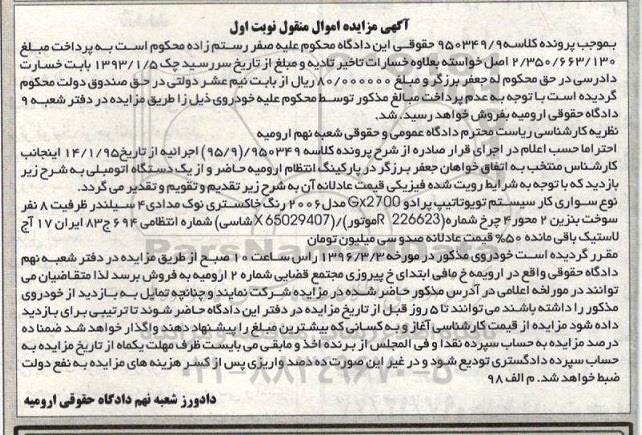 آگهی مزایده اموال منقول نوبت اول
بموجب پرونده کلاسه ۹۵۰۳۴۹/۹ حقوقی این دادگاه محکوم علیه صفر رستم زاده محکوم است به پرداخت مبلغ
۲/۳۵۰/۶۶۳/۱۳۰ اصل خواسته بعلاوه خسارات تاخیر تادیه و مبلغ از تاریخ سررسید چک ۱۳۹۳/۱/۵ بابت خسارت
دادرسی در حق محکوم له جعفر برزگر و مبلغ ۸۰/۰۰۰۰۰۰ ریال از بابت نیم عشر دولتی در حق صندوق دولت محکوم
گردیده است با توجه به عدم پرداخت مبالغ مذکور توسط محکوم علیه خودروی ذیل زا طریق مزایده در دفتر شعبه ۹
دادگاه حقوقی ارومیه بفروش خواهد رسید. شد.
نظریه کارشناسی ریاست محترم دادگاه عمومی و حقوقی شعبه نهم ارومیه
احتراما حسب اعلام در اجرای قرار صادره از شرح پرونده کلاسه ۹۵۰۳۴۹/(۹۵/۹) اجرائیه از تاریخ ۱۴/۱/۹۵ اینجانب
کارشناس منتخب به اتفاق خواهان جعفر برزگر در پارکینگ انتظام ارومیه حاضر و از یک دستگاه اتومبیل به شرح زیر
بازدید که با توجه به شرایط رویت شده فیزیکی قیمت عادلانه آن به شرح زیر تقدیم و تقویم و تقدیر می گردد.
نوع سواری کار سیستم تویوتاتیپ پرادو Gx2700 مدل ۲۰۰۶ رنگ خاکستری نوک مدادی ۴ سیلندر ظرفیت ۸ نفر
سوخت بنزین ۲ محور ۴ چرخ شماره (R 226623موتور)/(X65029407 شاسی) شماره انتظامی ۶۹۴ ج۸۳ ایران ۱۷ آج
لاستیک باقی مانده ۵۰% قیمت عادلانه صدو سی میلیون تومان
مقرر گردیده است خودروی مذکور در مورخه ۱۳۹۶/۳/۳ راس ساعت ۱۰ صبح از طریق مزایده در دفتر شعبه نهم
دادگاه حقوقی واقع در ارویمه خ مافی ابتدای خ پیروزی مجتمع قضایی شماره ۲ ارومیه به فروش برسد لذا متقاضیان می
توانند در مورخه اعلامی در آدرس مذکور حاضر شده در مزایده شرکت نمایند و چنانچه تمایل به بازدید از خودروی
مذکور را داشته باشند می توانند تا ۵ روز قبل از تاریخ مزایده در دفتر این دادگاه حاضر شوند تا ترتیبی برای بازدید
داده شود مزایده از قیمت کارشناسی آغاز و به کسانی که بیشترین مبلغ را پیشنهاد دهند واگذار خواهد شد ضمنا ده
درصد مزایده به حساب سپرده نقدا و فی المجلس از برنده اخذ و مابقی می بایست ظرف مهلت یکماه از تاریخ مزایده به
حساب سپرده دادگستری تودیع شود و در غیر این صورت ده دصد واریزی پس از کسر هزینه های مزایده به نفع دولت
ضبط خواهد شد. م الف ۹۸
دادورز شعبه نهم دادگاه حقوقی ارومیه